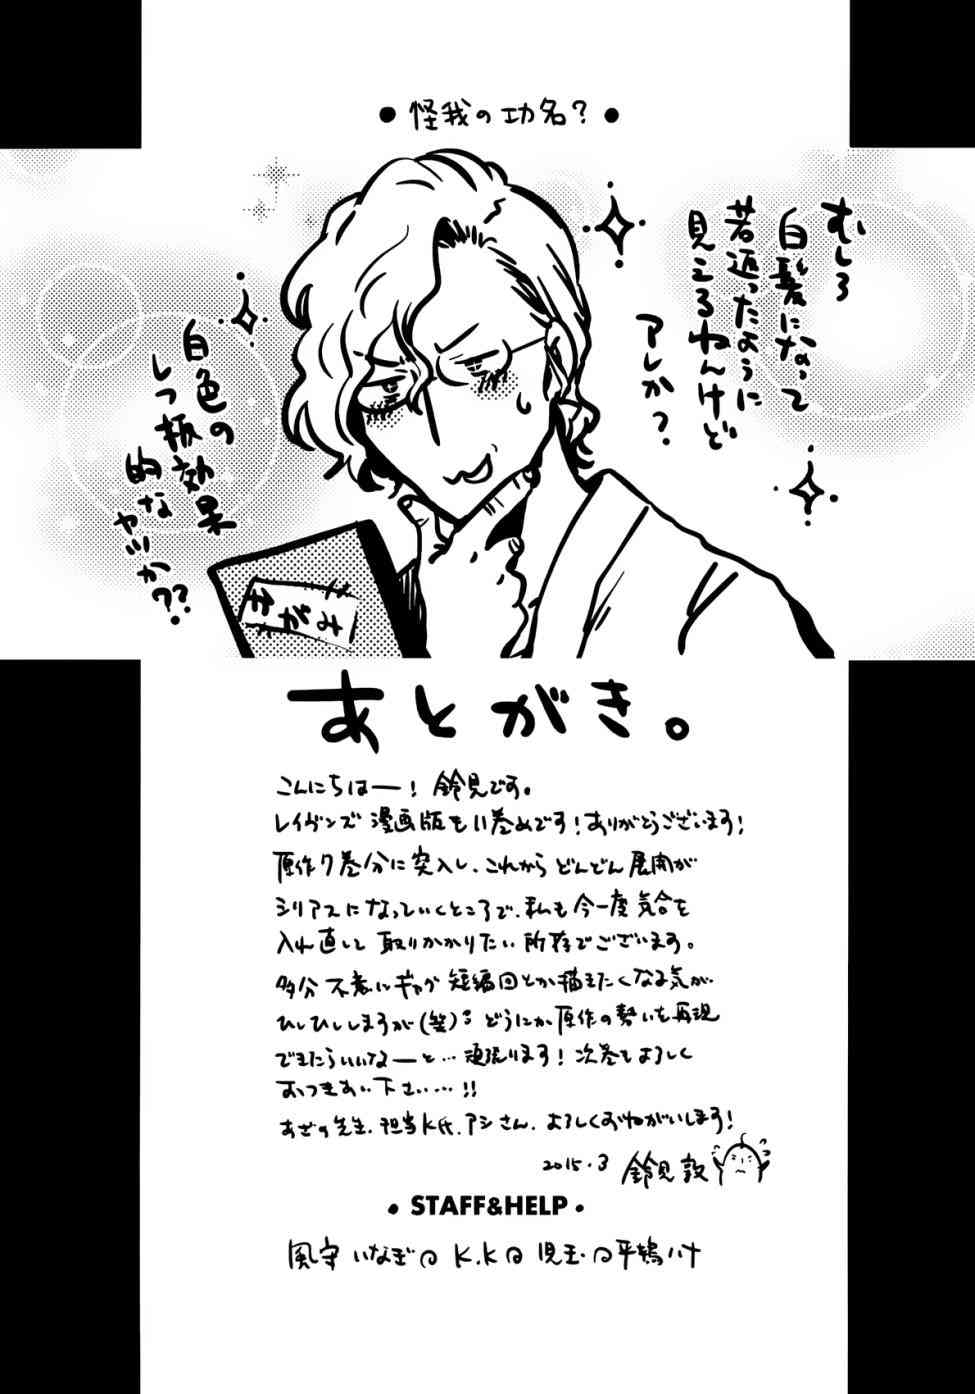 ●怪我の功名?●
むしろ
白髪になって
若返ったように
見えるねんけど
アレか?
白色の
レフ板効果
的な
ヤツか??
さがみ
あとがき。
こんにちはー! 鈴見です。
レイヴンズ漫画版も11巻めです!ありがとうございます!
原作7巻分に突入し、これからどんどん展開が
シリアスになっていくところで、私も今一度気合を
入れ直して取りかかりたい所存でございます。
多分不意にギャグ短編回とか描きたくなる気が
ひしひししますが(笑) どうにか原作の勢いを再現
できたらいいなーと…頑張ります!次巻もよろしく
おつきあい下さい…!!
あざの先生、担当K氏、アシさん、よろしくおねがいします!
2015.3 鈴見敦
• STAFF&HELP •
風守いなぎ K.K 児玉 平鴇ハナ